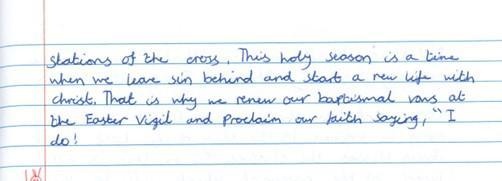 stations of the cross. This holy season is a time
when we leave sin behind and start a new life with
christ. That is why we renew our baptismal vows at
the Easter Vigil and Proclaim our faith saying, "I
do!